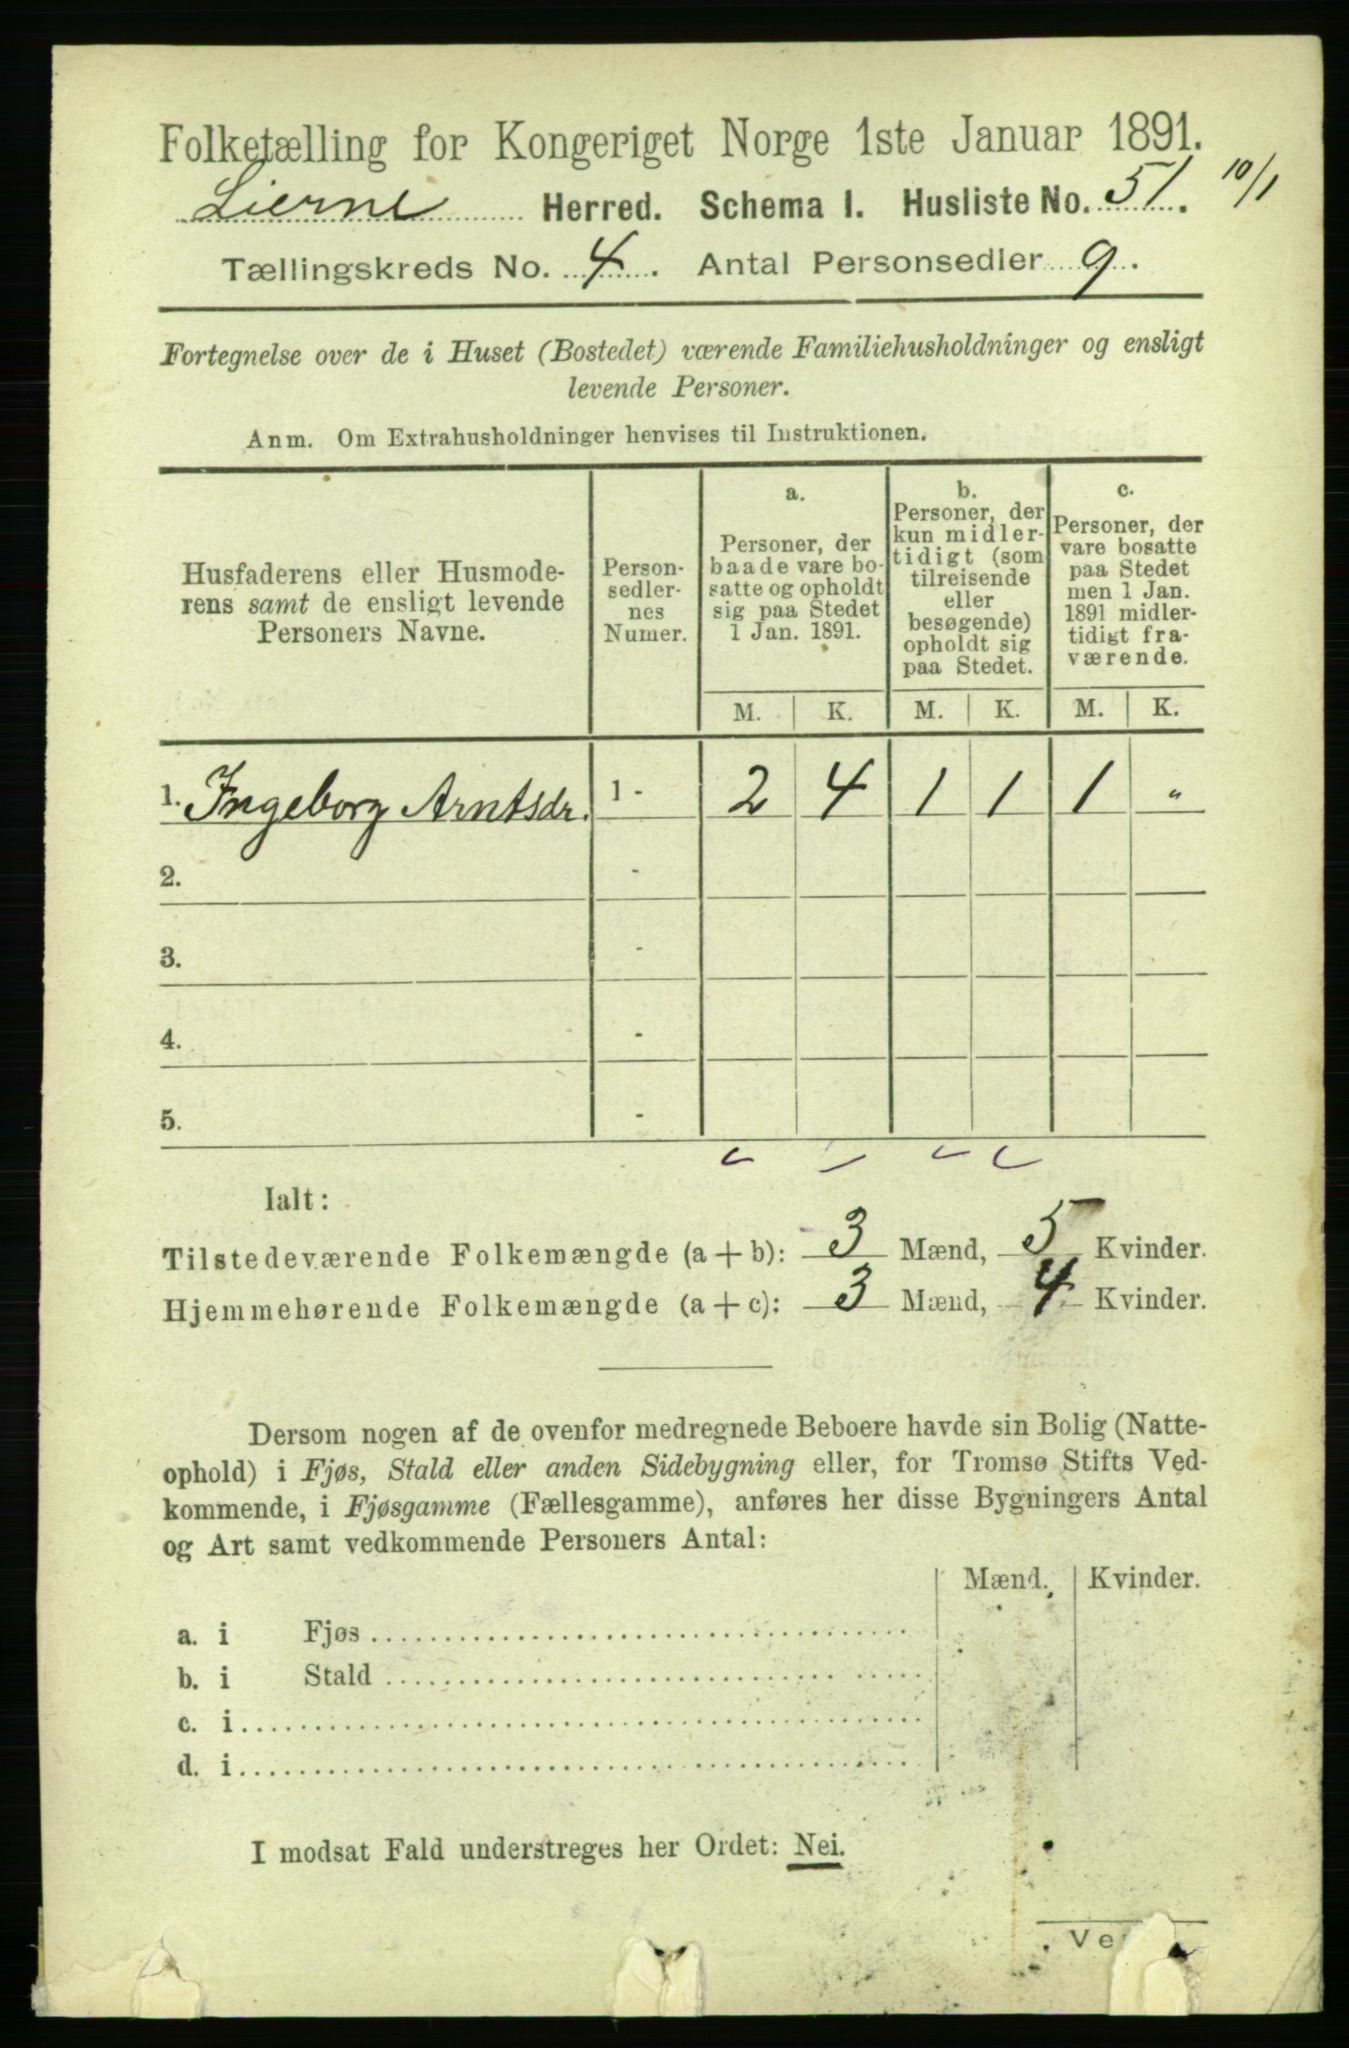 Folketælling for Kongeriget Norge 1ste Januar 1891.
Lierne Herred. Schema I. Husliste No. 51. 10/1
Tællingskreds No. 4. Antal Personsedler 9.
Fortegnelse over de i Huset (Bostedet) værende Familiehusholdninger og ensligt
levende Personer.
Anm. Om Extrahusholdninger henvises til Instruktionen.
Husfaderens eller Husmode-
rens samt de ensligt levende
Personers Navne.
Person-
sedler-
nes
Numer.
a.
Personer, der
baade vare bo-
satte og opholdt
sig paa Stedet
1 Jan. 1891.
b.
Personer, der
kun midler-
tidigt (som
tilreisende
eller
besøgende)
opholdt sig
paa Stedet.
c.
Personer, der
vare bosatte
paa Stedet
men 1 Jan.
1891 midler-
tidigt fra-
værende.
M. K. M. K. M. K.
1. Ingeborg Arntsdr. 1 - 2 4 1 1 1 "
2. -
3. -
4. -
5. -
Ialt:
Tilstedeværende Folkemængde (a + b): 3 Mænd, 5 Kvinder.
Hjemmehørende Folkemængde (a + c): 3 Mænd, 4 Kvinder.
Dersom nogen af de ovenfor medregnede Beboere havde sin Bolig (Natte-
ophold) i Fjøs, Stald eller anden Sidebygning eller, for Tromsø Stifts Ved-
kommende, i Fjøsgamme (Fællesgamme), anføres her disse Bygningers Antal
og Art samt vedkommende Personers Antal:
Mænd. Kvinder.
a. i Fjøs
b. i Stald
c. i
d. i
I modsat Fald understreges her Ordet: Nei.